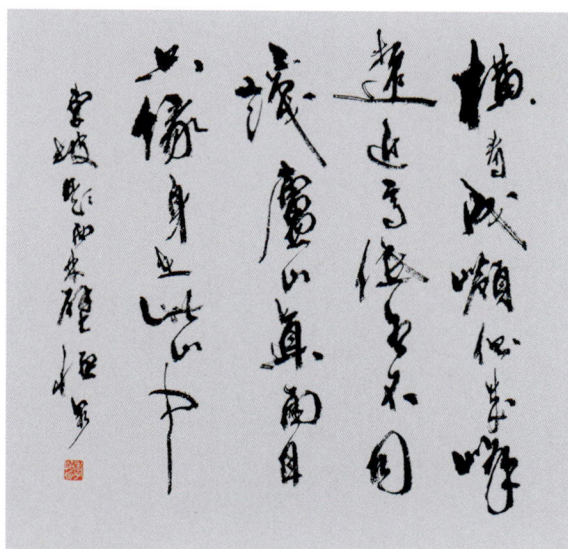 橫看成嶺側成峰
遠近高低各不同
不識廬山真面目
只緣身在此山中
東坡題西林壁